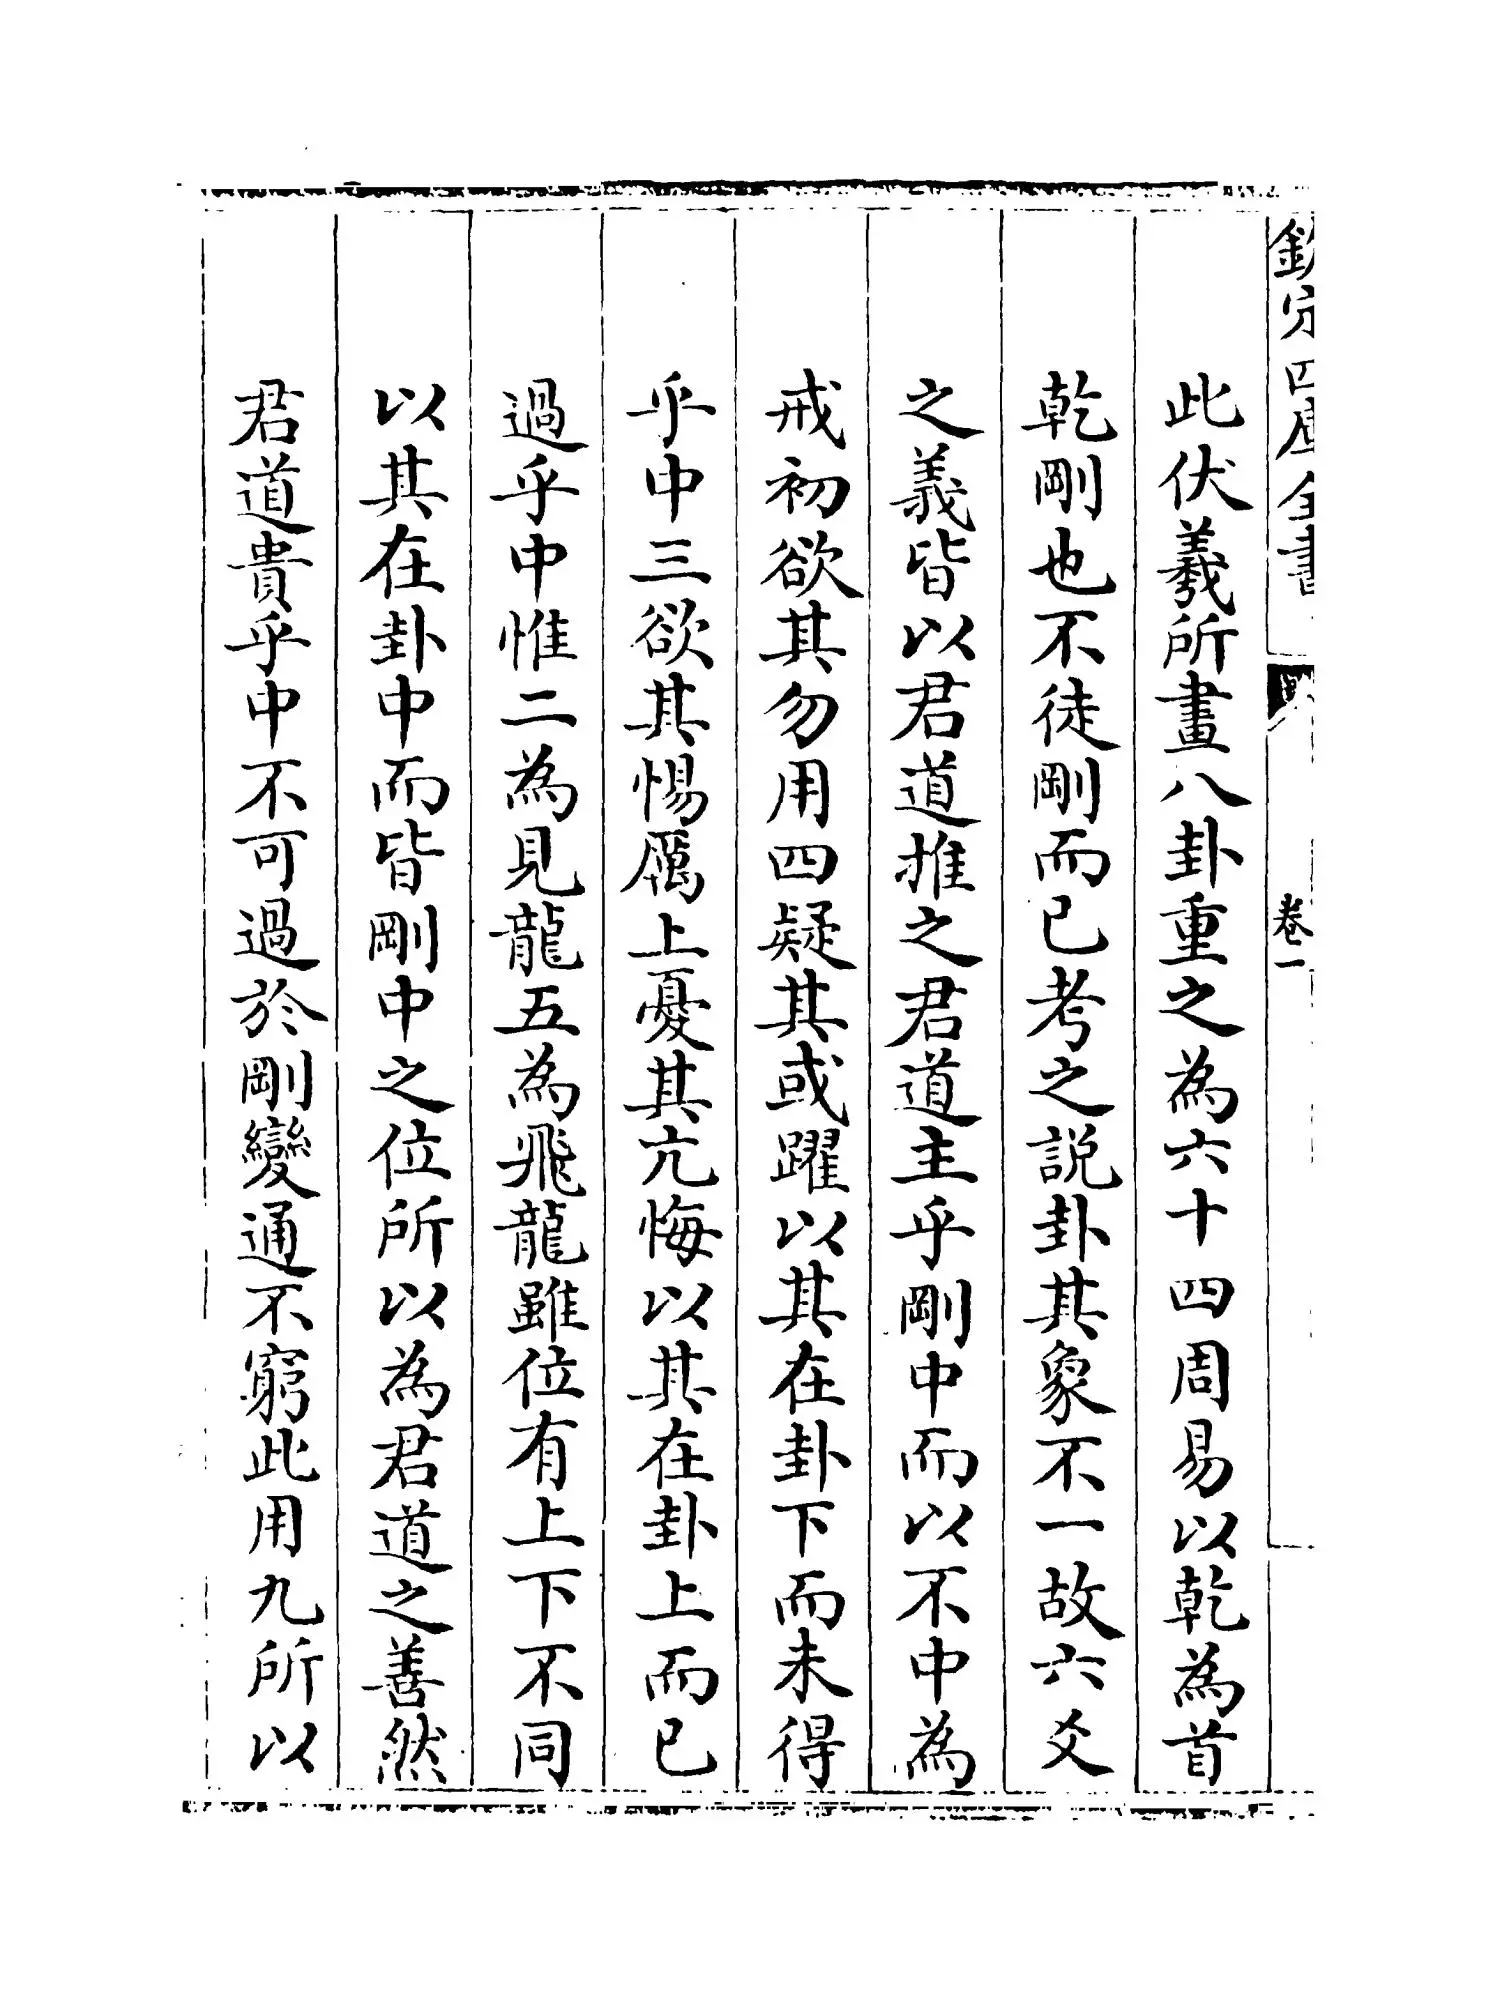 欽定四庫全書
卷一
此伏羲所畫八卦重之為六十四周易以乾為首
乾剛也不徒剛而已考之説卦其象不一故六爻
之義皆以君道推之君道主乎剛中而以不中為
戒初欲其勿用四疑其或躍以其在卦下而未得
乎中三欲其惕厲上憂其亢悔以其在卦上而已
過乎中惟二為見龍五為飛龍雖位有上下不同
以其在卦中而皆剛中之位所以為君道之善然
君道貴乎中不可過於剛變通不窮此用九所以